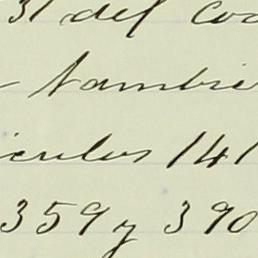 31 del Cod
tambie
iculos 141
359 y 390